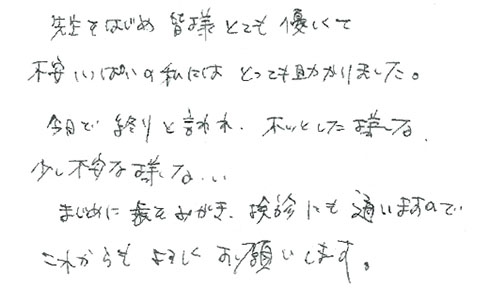 先生をはじめ 皆様とても優しくて
不安いっぱいの私には とっても助かりました。
今日で終りと言われ、ホッとした様な、
少し不安な様な...
まじめに歯をみがき、検診にも通いますので
これからもよろしくお願いします。